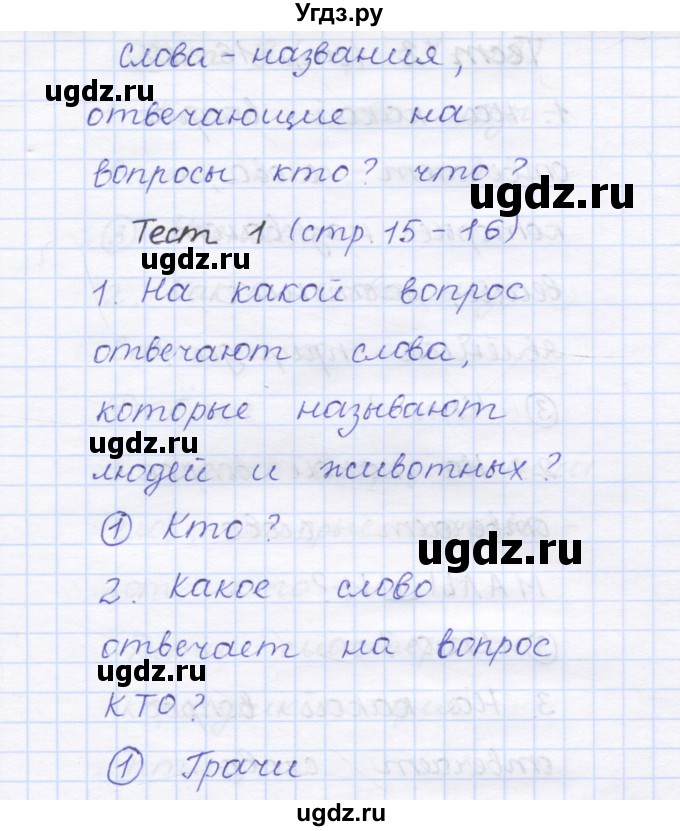 Угдз.ру
слова - названия,
ugdz.ru
отвечающие на
вопросы кто? что?
ugdz.ru
Тест 1 (стр. 15 - 16)
ugdz.ru
1. На какой вопрос
отвечают слова,
которые называют
ugdz.ru
людей и животных?
① Кто?
ugdz.ru
2. Какое слово
отвечает на вопрос
ugdz.ru
КТО?
① Грачи
ugdz.ru